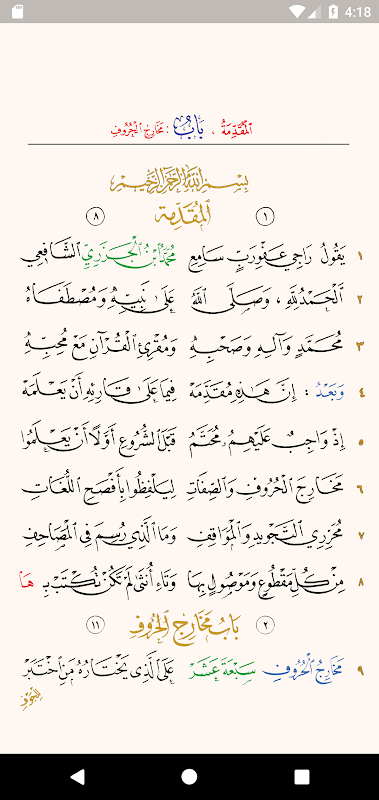 4:18
المُقَدِّمَةُ ، بَابُ : مَخَارِجِ الْحُرُوفِ
بِسْمِ اللَّهِ الرَّحْمَٰنِ الرَّحِيمِ
١ المُقَدِّمَة ٨
١ يَقُولُ رَاجِي عَفْوِ رَبٍّ سَامِعِ مُحَمَّدُ ابْنُ الْجَزَرِيِّ الشَّافِعِي
٢ اَلْحَمْدُ لِلَّهِ ، وَصَلَّى اللَّهُ عَلَى نَبِيِّهِ وَمُصْطَفَاهُ
٣ مُحَمَّدٍ وَآلِهِ وَصَحْبِهِ وَمُقْرِئِ الْقُرْآنِ مَعْ مُحِبِّهِ
٤ وَبَعْدُ : إِنَّ هَٰذِهِ مُقَدِّمَهْ فِيمَا عَلَى قَارِئِهِ أَنْ يَعْلَمَهْ
٥ إِذْ وَاجِبٌ عَلَيْهِمُ مُحَتَّمُ قَبْلَ الشُّرُوعِ أَوَّلًا أَنْ يَعْلَمُوا
٦ مَخَارِجَ الْحُرُوفِ وَالصِّفَاتِ لِيَلْفِظُوا بِأَفْصَحِ اللُّغَاتِ
٧ مُحَرِّرِي التَّجْوِيدِ وَالْمَوَاقِفِ وَمَا الَّذِي رُسِمَ فِي الْمَصَاحِفِ
٨ مِنْ كُلِّ مَقْطُوعٍ وَمَوْصُولٍ بِهَا وَتَاءِ أُنْثَى لَمْ تَكُنْ تُكْتَبْ بِـ هَا
٢ بَابُ مَخَارِجِ الْحُرُوفِ ١١
٩ مَخَارِجُ الْحُرُوفِ سَبْعَةَ عَشَرْ عَلَى الَّذِي يَخْتَارُهُ مَنِ اخْتَبَرْ
لِلْجَوْفِ